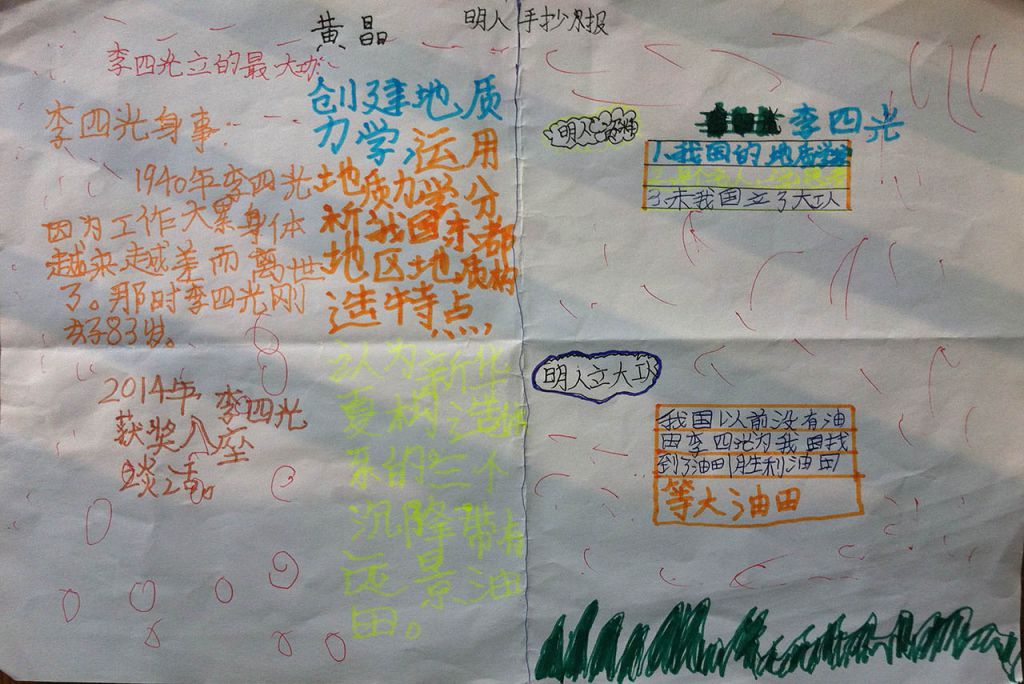 明人手抄报
黄晶
李四光立的最大功
李四光身事:
1940年李四光
因为工作大累身体
越来越差而离世
了。那时李四光刚
好83岁。
2014年李四光
获奖人座
谈话。
创建地质
力学,运用
地质力学分
析我国东部
地区地质构
造特点,
认为新华
夏构造
系的三个
沉降带有
还景油
田。
明人资料
李四光
1.我国的地质学
3.未我国立了大功
明人立大功
我国以前没有油
田李四光为我国找
到了油田胜利油田
等大油田